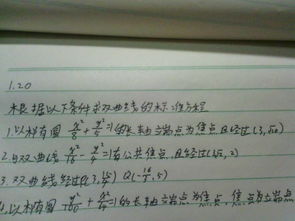 1.20
根据以下条件求双曲线的标准方程
1.以椭圆 x²/8+y²/5=1的长轴端点为焦点且经过(3,√10)
2.与双曲线 x²/16-y²/4=1有公共焦点,且经过(3√2,2)
3.双曲线经过P(3,15/4) Q(-16/3,5)
4.以椭圆 + =1的长轴端点为焦点 焦点为端点